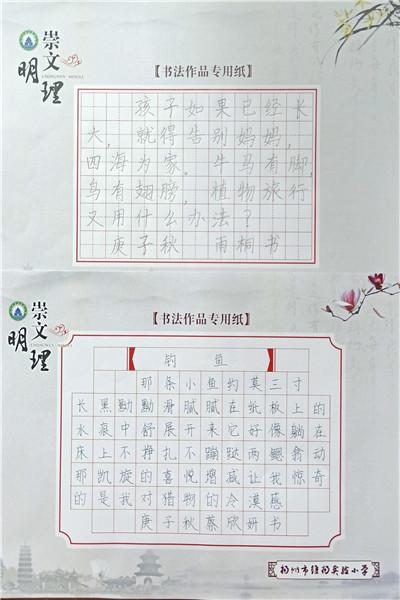 崇文
明理
【书法作品专用纸】
孩子如果已经长
大，就得告别妈妈，
四海为家。牛马有脚，
鸟有翅膀，植物旅行
又用什么办法？
庚子秋 雨桐书
崇文
明理
【书法作品专用纸】
钓鱼
那条小鱼约莫三寸
长黑黝黝滑腻腻在纸板上的
水痕中舒展开来它好像躺在
床上不挣扎不蹦跶两鳃翕动
那凯旋的喜悦增减让我惊奇
的是我对猎物的冷漠感
庚子秋蔡欣妍书
扬州市维扬实验小学